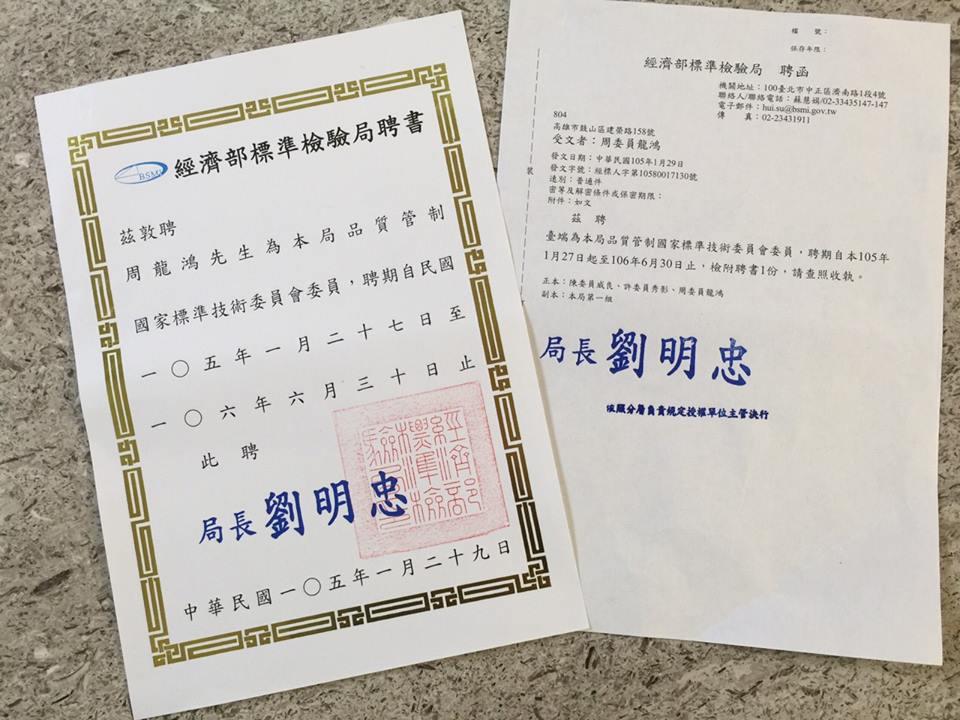 BSMI
經濟部標準檢驗局聘書
茲敦聘
周龍鴻先生為本局品質管制
國家標準技術委員會委員，聘期自民國
一○五年一月二十七日至
一○六年六月三十日止
此聘
局長 劉明忠
經濟部標準檢驗局
中華民國一○五年一月二十九日
檔　號：
保存年限：
經濟部標準檢驗局　聘函
機關地址：100臺北市中正區濟南路1段4號
聯絡人/聯絡電話：蘇慧娟/02-33435147-147
電子郵件：hui.su@bsmi.gov.tw
傳　真：02-23431911
804
高雄市鼓山區建榮路158號
受文者：周委員龍鴻
發文日期：中華民國105年1月29日
發文字號：經標人字第10580017130號
速別：普通件
密等及解密條件或保密期限：
附件：如文
裝
茲　聘
臺端為本局品質管制國家標準技術委員會委員，聘期自本105年
1月27日起至106年6月30日止，檢附聘書1份，請查照收執。
正本：陳委員威良、許委員秀影、周委員龍鴻
副本：本局第一組
局長 劉明忠
依照分層負責規定授權單位主管決行